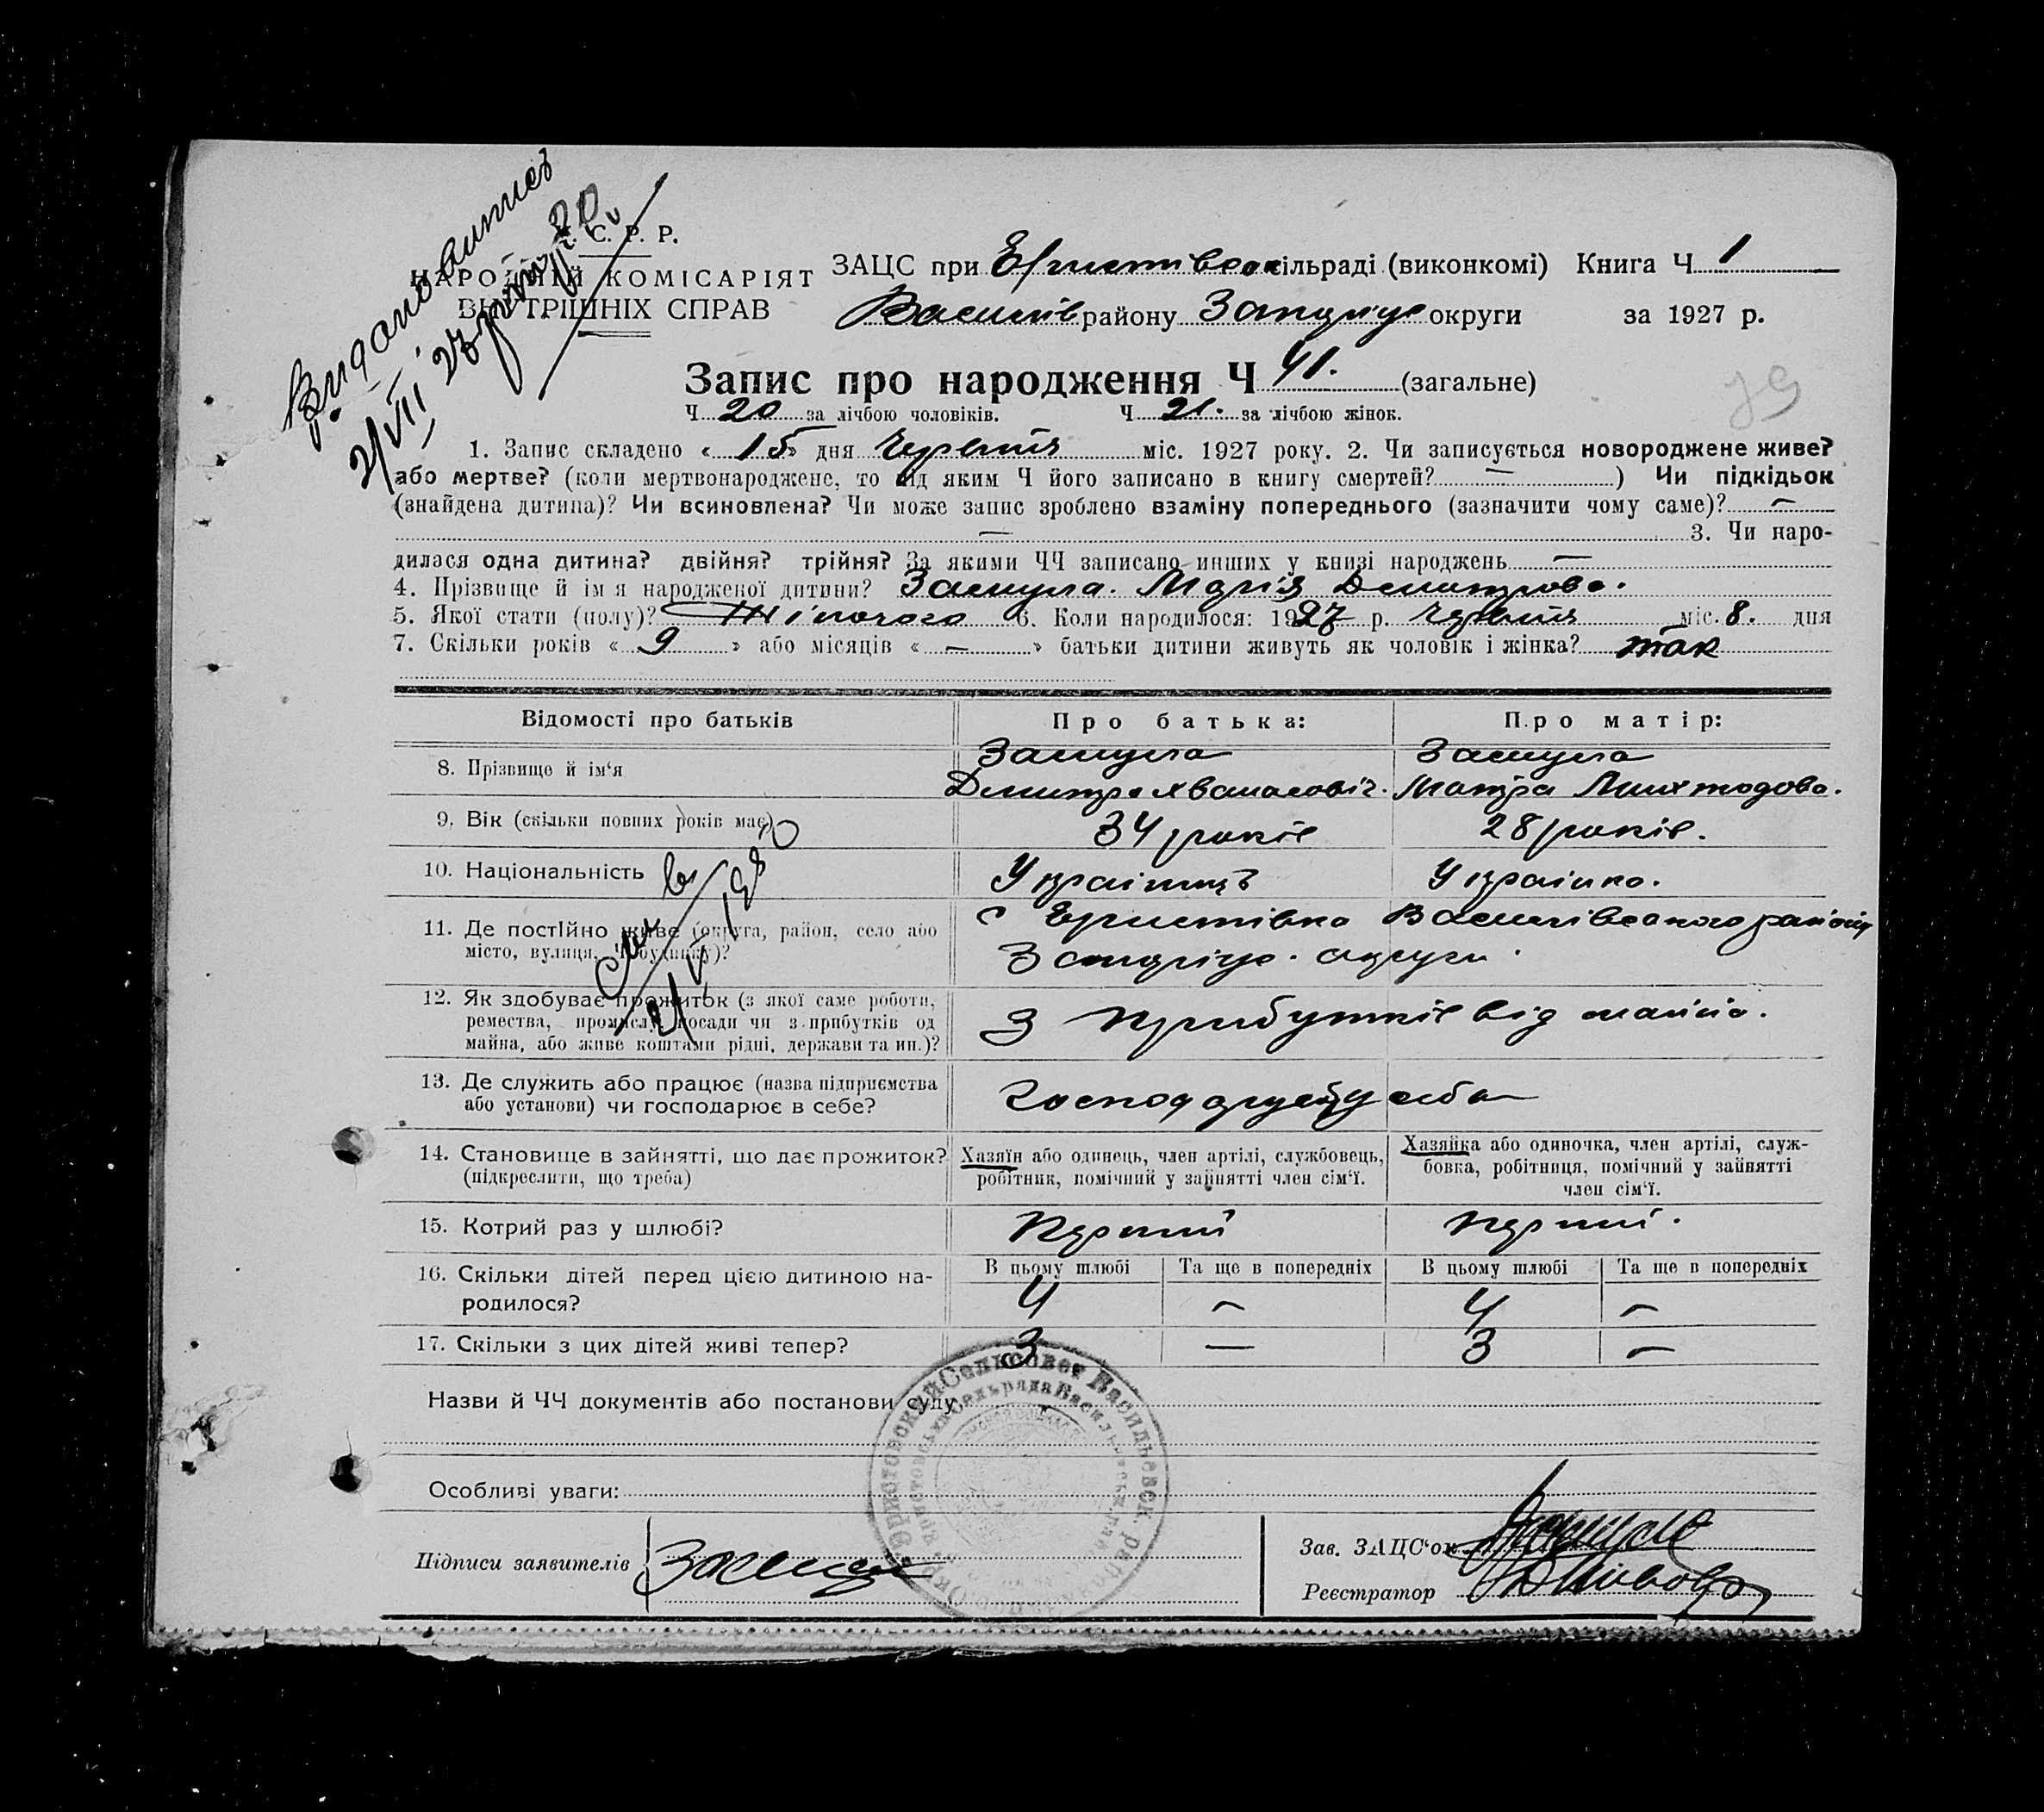 У. С. Р. Р.
НАРОДНІЙ КОМІСАРІЯТ
ВНУТРІШНІХ СПРАВ
ЗАЦС при Ериствсок сільраді (виконкомі) Книга Ч 1
Василів району Запоріж округи за 1927 р.
Запис про народження Ч 41. (загальне)
Ч 20 за лічбою чоловіків. Ч 21. за лічбою жінок.
1. Запис складено « 15 » дня Червня міс. 1927 року. 2. Чи записується новороджене живе?
або мертве? (коли мертвонароджене, то під яким Ч його записано в книгу смертей? — ) Чи підкідьок
(знайдена дитина)? Чи всиновлена? Чи може запис зроблено взаміну попереднього (зазначити чому саме)? —
— 3. Чи наро-
дилася одна дитина? двійня? трійня? За якими ЧЧ записано инших у книзі народжень —
4. Прізвище й ім'я народженої дитини? Зашула. Марія Дмитрова.
5. Якої стати (полу)? Жіночого 6. Коли народилося: 1927 р. Червня міс. 8. дня
7. Скільки років « 9 » або місяців « — » батьки дитини живуть як чоловік і жінка? так
Відомості про батьків Про батька: Про матір:
8. Прізвище й ім'я Зашула Зашула
Дмитро Хванасовіч. Мотря
9. Вік (скільки повних років має) 34 років 28 років.
10. Національність Українць Українка.
11. Де постійно живе (округа, район, село або місто, вулиця, Ч будинку)? с Еристівка Василівського району
Запоріцо. округи.
12. Як здобуває прожиток (з якої саме роботи, ремества, промислу, посади чи з прибутків од майна, або живе коштами рідні, держави та ин.)? З прибутків від майна.
13. Де служить або працює (назва підприємства або установи) чи господарює в себе? Господарує у себе
14. Становище в зайнятті, що дає прожиток? (підкреслити, що треба) Хазяїн або одинець, член артілі, службовець, робітник, помічний у зайнятті член сім'ї. Хазяйка або одиночка, член артілі, служ-
бовка, робітниця, помічний у зайнятті
член сім'ї.
15. Котрий раз у шлюбі? Перший перший.
16. Скільки дітей перед цією дитиною на-
родилося? В цьому шлюбі Та ще в попередніх В цьому шлюбі Та ще в попередніх
4 — 4 —
17. Скільки з цих дітей живі тепер? 3 — 3 —
Назви й ЧЧ документів або постанови суду
Особливі уваги:
Підписи заявителів
Зав. ЗАЦС'ом
Реєстратор